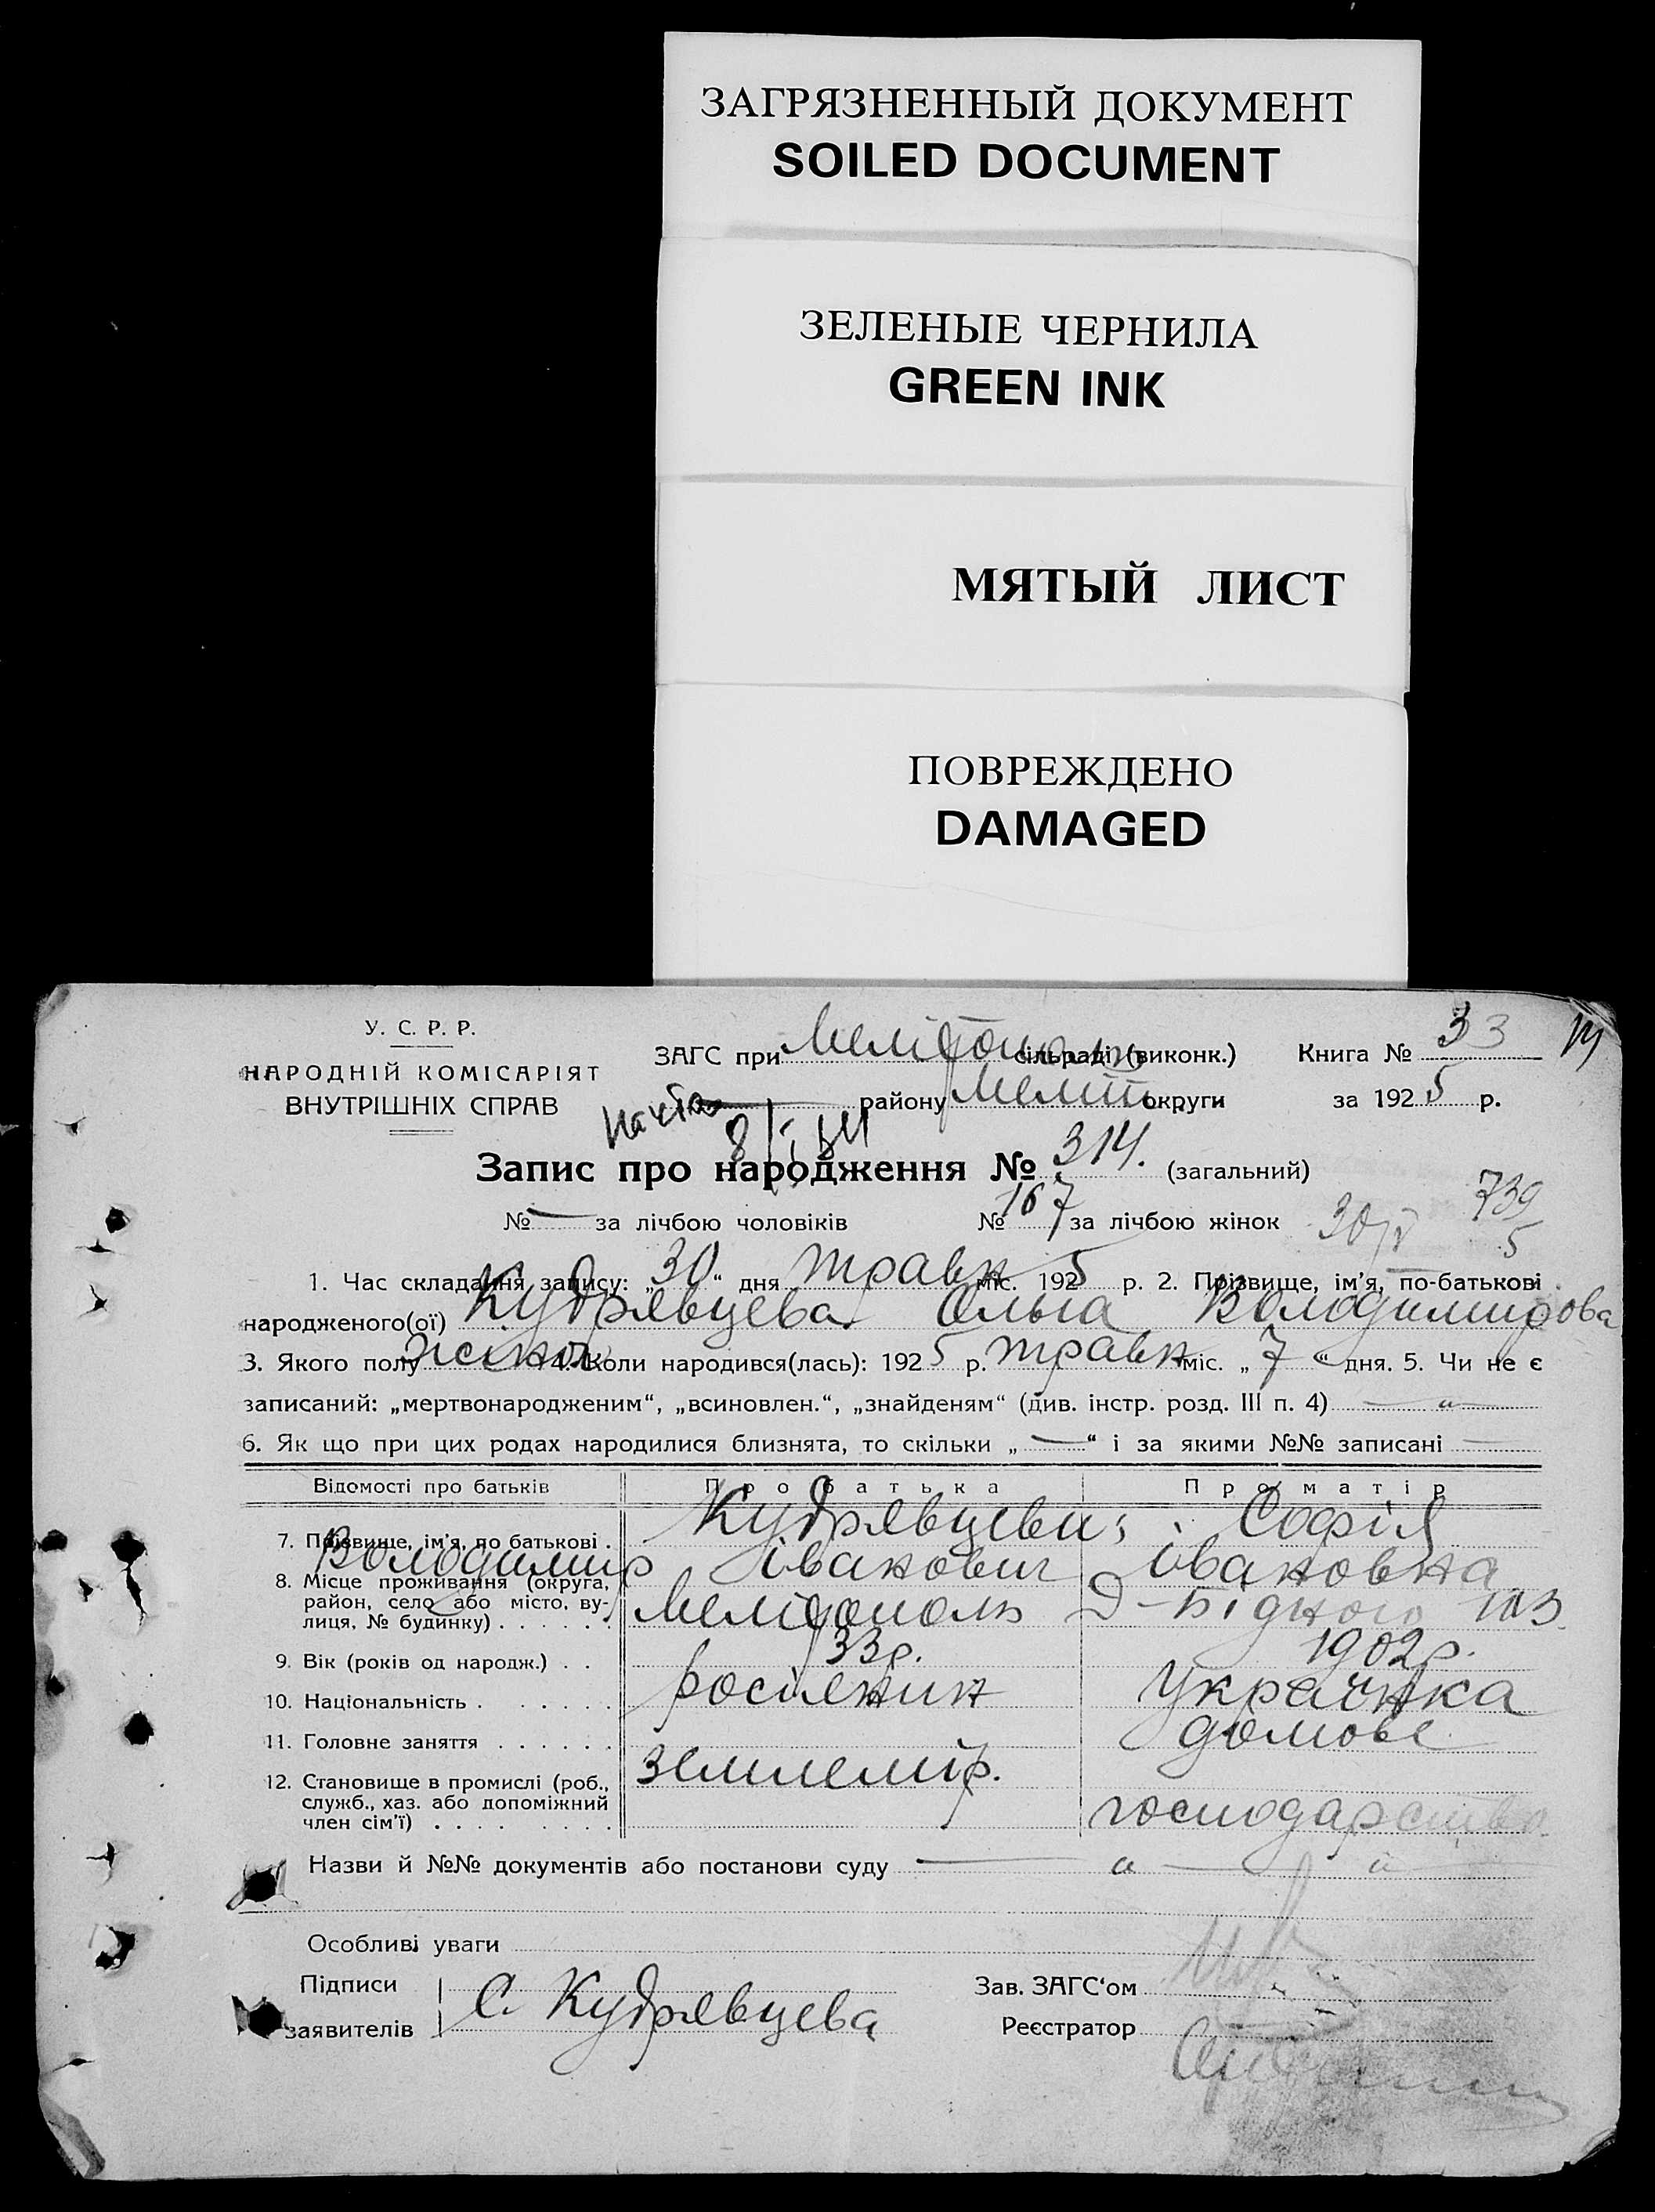 ЗАГРЯЗНЕННЫЙ ДОКУМЕНТ
SOILED DOCUMENT
ЗЕЛЕНЫЕ ЧЕРНИЛА
GREEN INK
МЯТЫЙ ЛИСТ
ПОВРЕЖДЕНО
DAMAGED
У. С. Р. Р.
НАРОДНІЙ КОМІСАРІЯТ
ВНУТРІШНІХ СПРАВ
ЗАГС при Мелітополь сільраді (виконк.) Книга № 33
району Меліт. округи за 1925 р.
Запис про народження № 314. (загальний)
№ — за лічбою чоловіків № 167 за лічбою жінок
739
5
1. Час складання запису: „30“ дня травн міс. 1925 р. 2. Прізвище, ім'я, по-батькові
народженого(ої) Кудрявцева Ольга Володимирова
3. Якого полу жіноч 4. Коли народився(лась): 1925 р. травн міс. „7“ дня. 5. Чи не є
записаний: „мертвонародженим“, „всиновлен.“, „знайденям“ (див. інстр. розд. III п. 4) — „ —
6. Як що при цих родах народилися близнята, то скільки „—“ і за якими №№ записані —
Відомості про батьків Про батька Про матір
7. Прізвище, ім'я, по батькові . Кудрявцеви: Софія
Володимир Іванович Івановна
8. Місце проживання (округа,
район, село або місто, ву-
лиця, № будинку) . . . . . . Мелітополь Д-Бідного 103
9. Вік (років од народж.) . . 33р. 1902р.
10. Національність . . . . . . росіянин Українка
11. Головне заняття . . . . . . землемір. домове
12. Становище в промислі (роб.,
служб., хаз. або допоміжний
член сім'ї) . . . . . . . . господарство
Назви й №№ документів або постанови суду — „ — „ —
Особливі уваги
Підписи
заявителів С. Кудрявцева
Зав. ЗАГС'ом
Реєстратор